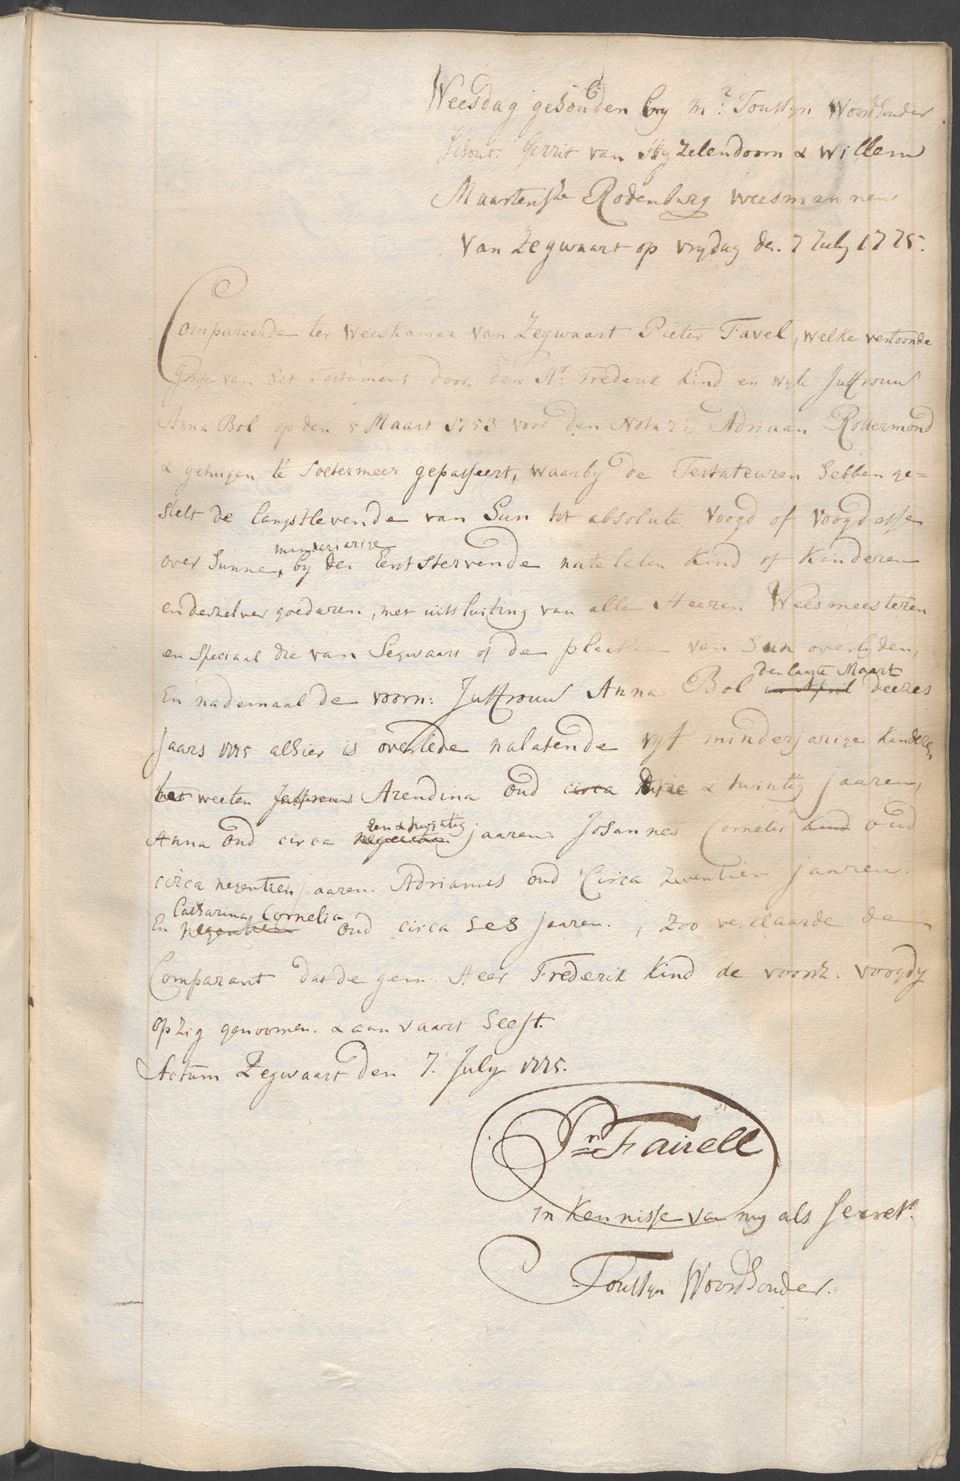 Weesdag gehouden by mr. Toussyn Woordhouder
Schout. Gerrit van Hyzelendoorn & Willem
Maartensze Rodenburg weesmannen
van Zegwaart op vrydag de. 7 July 1775.
Compareerde ter weeskamer van Zegwaart Pieter Favel, welke vertoonde
van het Testament door den Hr. Frederik Kind en wyle Juffrouw
Anna Bol op den 5 Maart 1753 voor den Notaris Adriaan Rottermond
& getuigen te Soetermeer gepasseert, waarby de Testateuren hebben ge-
stelt de langstlevende van hun tot absolute voogd of voogdesse
over hunne, minderjarige by den Eerststervende natelaten Kind of Kinderen
en derzelver goederen, met uitsluiting van alle Heeren Weesmeesteren
en speciaal die van Segwaart of de plaatse van hun overlyden,
En nademaal de voorn: Juffrouw Anna Bol den laatste Maart in April deezes
Jaars 1775 alhier is overlede nalatende vyf minderjarige Kinderen
het weeten Juffrouw Arendina oud circa drie & twintig jaaren,
Anna oud circa een & twintig jaaren. Johannes Cornelis Kind oud
circa negentien jaaren. Adrianus oud Circa zeventien jaaren.
En Catharina Cornelia oud circa ses jaaren. , Zoo verklaarde de
Comparant dat de gem. Heer Frederik Kind de voorz. voogdy
op zig genoomen. & aanvaart heeft.
Actum Zegwaart den 7. July 1775.
Pr. Fairell
in Kennisse van my als Secrets.
Toussyn Woordhouder.